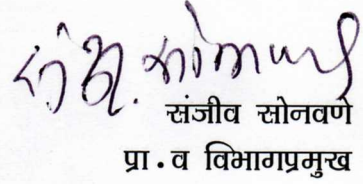 संजीव सोनवणे
प्रा. व विभागप्रमुख